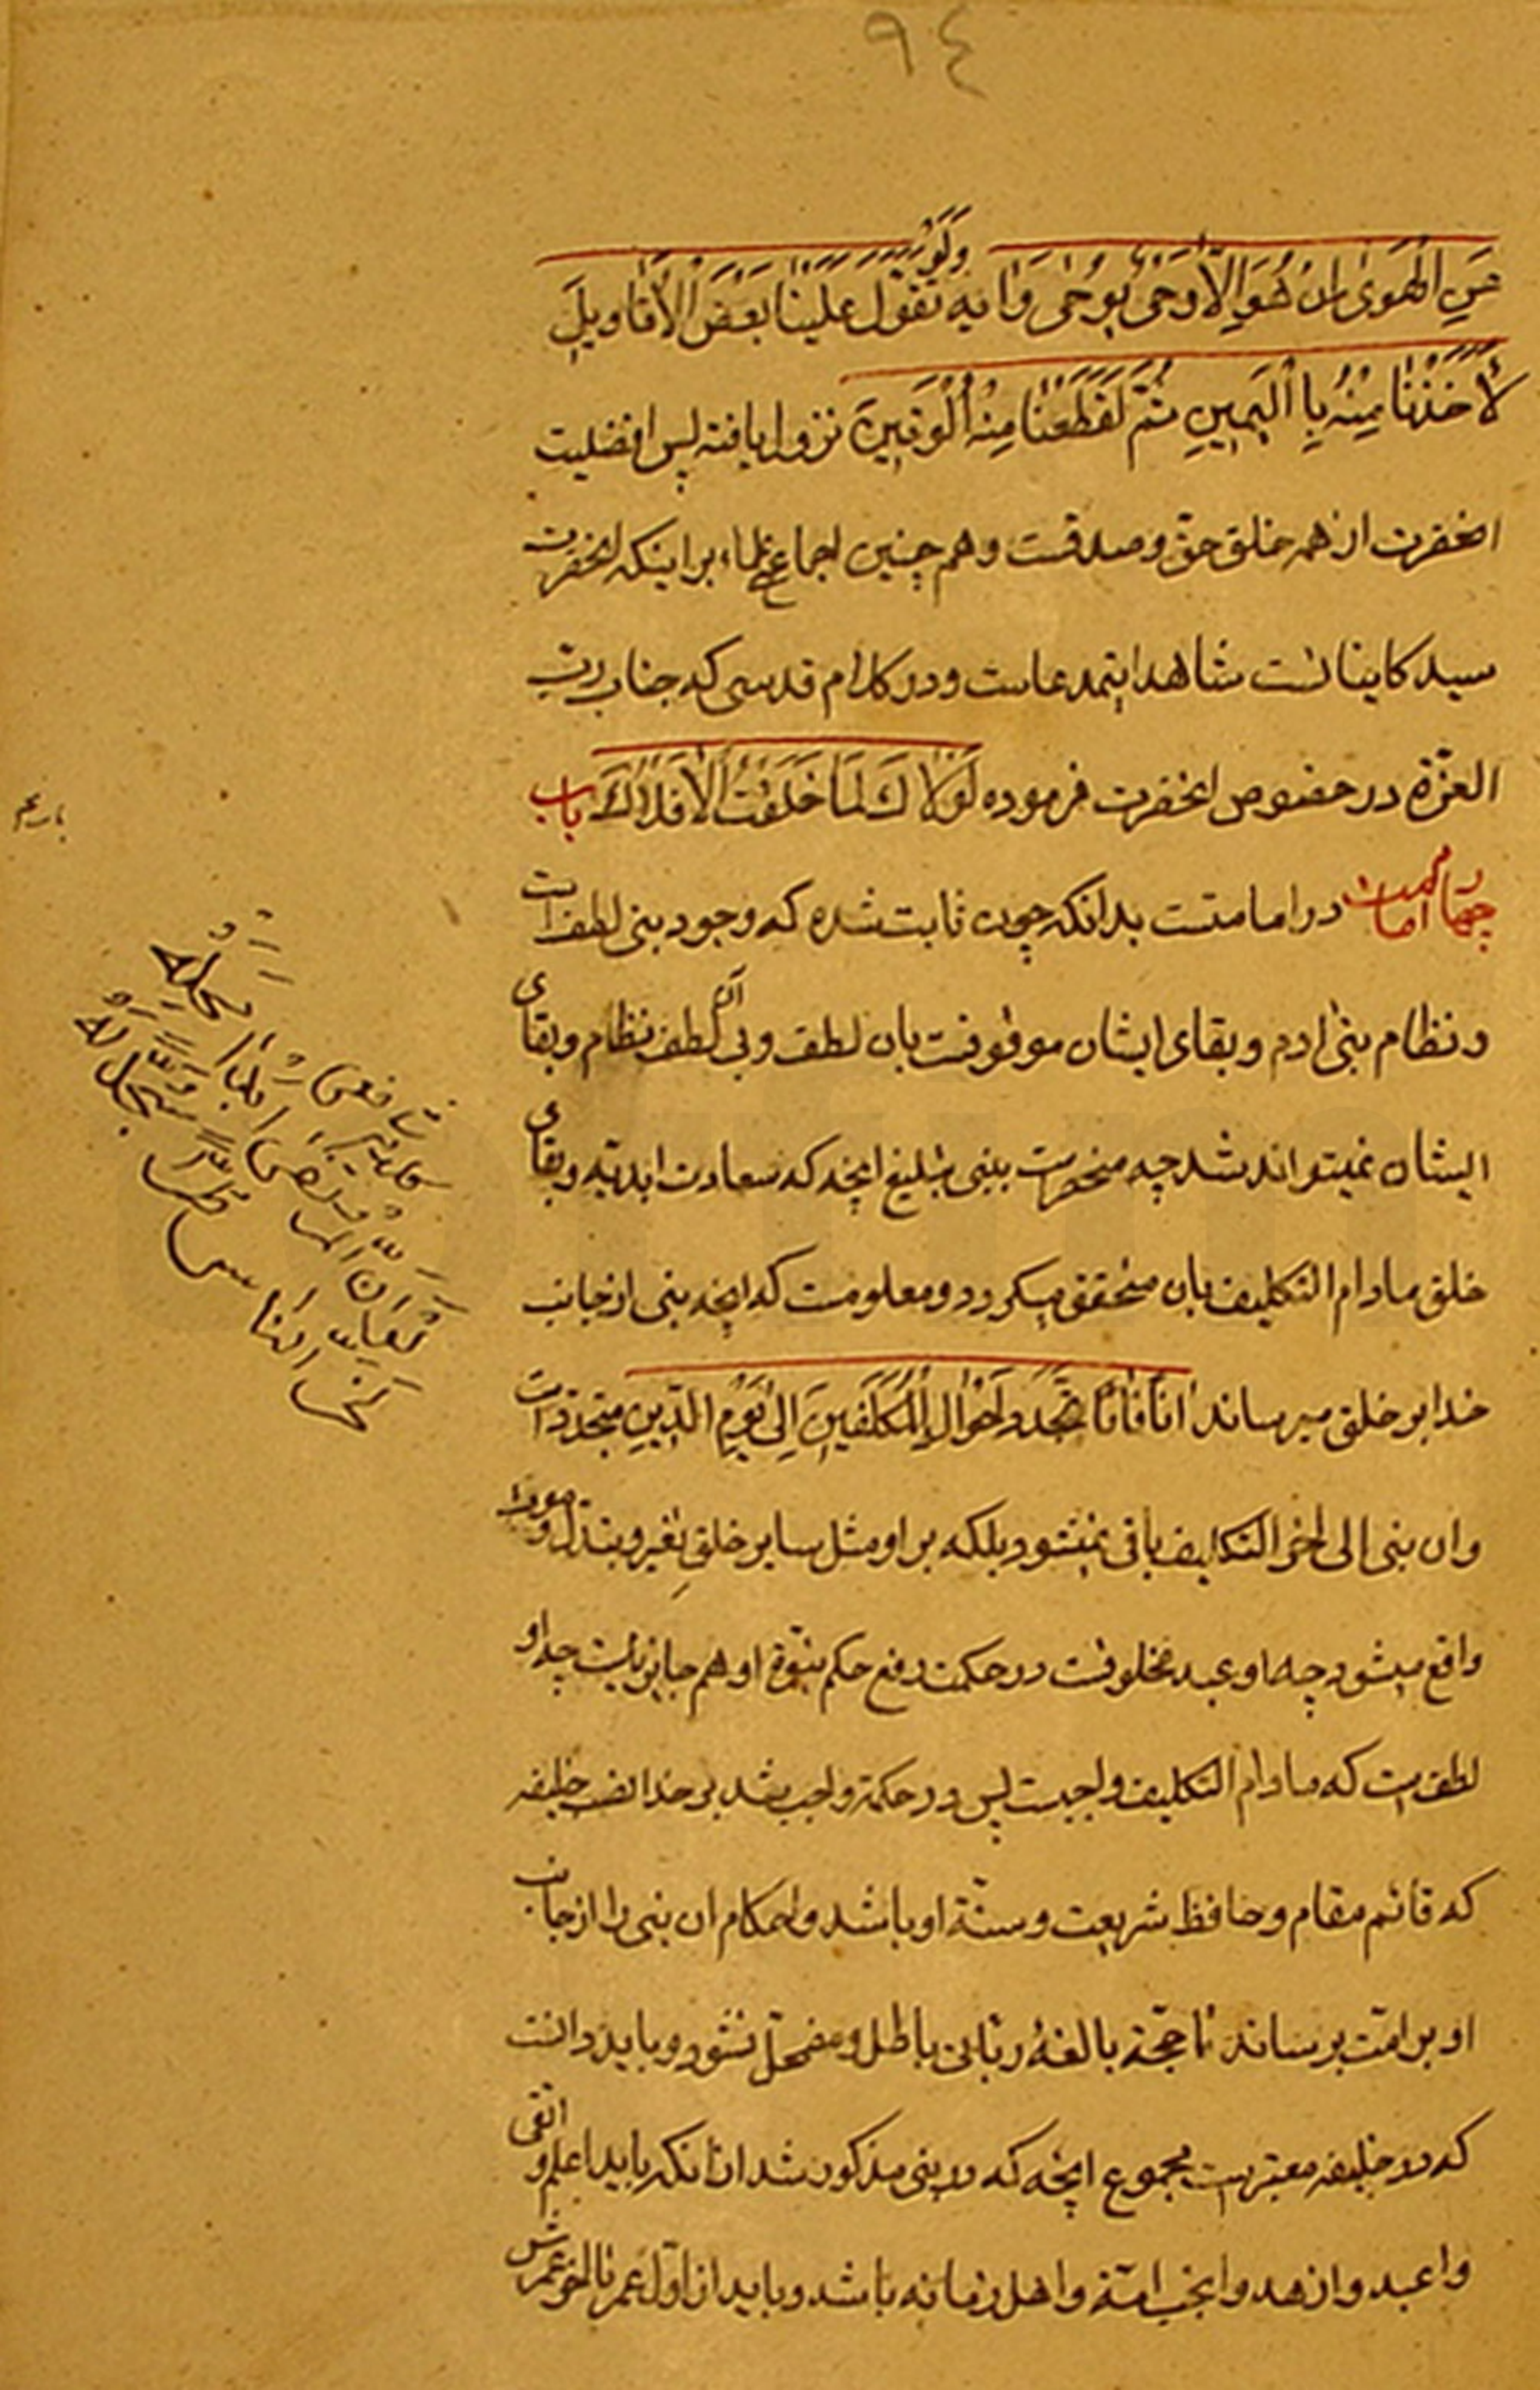 ٩٤
عَنِ الْهَوىٰ اِنْ هُوَ اِلاّٰ وَحْیٌ یُوحیٰ وَایه وَلَوْ تَقَوَّلَ عَلَیْنٰا بَعْضَ الْاَقٰاوِیلِ
لَاَخَذْنٰا مِنْهُ بِالْیَمِینِ ثُمَّ لَقَطَعْنٰا مِنْهُ الْوَتِینَ نزول یافته پس افضلیت
انحضرت از همه خلق حقّ و صدقست و هم چنین اجماع علماء بر اینکه انحضرت
سید کایناتست شاهد اینمدعاست و در کلام قدسی که جناب ربّ
العزّة در خصوص انحضرت فرموده لَوْلاٰكَ لَمٰا خَلَقْتُ الْاَفْلاٰكَ باب
چهارم در امامت در امامتست بدانکه چون ثابت شده که وجود بنی لطف است
و نظام بنی ادم و بقای ایشان موقوفست بان لطف و بی آن لطف نظام و بقای
ایشان نمیتواند شد چه منحصرست ببنی تبلیغ انچه که سعادت ابدیّه و بقای
خلق مادام التکلیف بان متحقق میگردد و معلومست که انچه بنی از جانب
خدا بر خلق میرساند اٰناً فَاٰناً بتَجَدّدِ اَحْوٰالِ الْمُکَلَّفِینَ اِلیٰ یَوْمِ الدّینِ متجدد است
وان بنی الی اخر التکلیف باقی نمیشود بلکه بر او مثل سایر خلق تغیر و تبدل و موت
واقع میشود چه او عبد مخلوقست در حکمت رفع حکم نبوّة او هم جایز نیست چه او
لطفیست که مادام التکلیف واجبست پس در حکمة واجب بشد بر خدا نصب خلیفه
که قائم مقام و حافظ شریعت و سنّة او باشد و احکام ان بنی را از جانب
او بر امّت برساند تا حجّة بالغهٔ ربّانی باطل و مضمحلّ نشود و باید دانست
که در خلیفه معتبرست مجموع انچه که در بنی مذکور شد از انکه باید اعلم و اتقی
و اعبد و ازهد و انجب امّة و اهل زمانه باشد و باید از اوّل عمر تا اخر عمرش